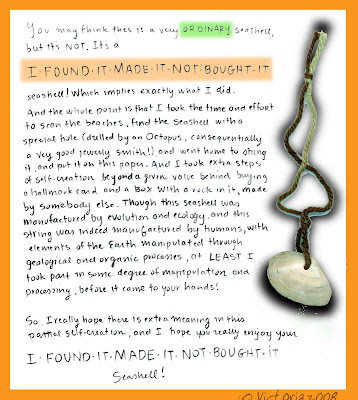 You may think this is a very ORDINARY seashell,
but it's NOT. It's a
I·FOUND·IT·MADE·IT·NOT·BOUGHT·IT
seashell! Which implies exactly what I did.
And the whole point is that I took the time and effort
to scan the beaches, find the Seashell with a
special hole (drilled by an Octopus, consequentially
a very good jewelry smith!) and went home to string
it, and put it on this paper. And I took extra steps
of self-creation beyond a given value behind buying
a hallmark card and a Box with a rock in it, made
by somebody else. Though this seashell was
manufactured by evolution and ecology, and this
string was indeed manufactured by humans, with
elements of the Earth manipulated through
geological and organic processes, at LEAST I
took part in some degree of manipulation and
processing, before it came to your hands!
So, I really hope there is extra meaning in this
partial self-creation, and I hope you really enjoy your
I·FOUND·IT·MADE·IT·NOT·BOUGHT·IT
Seashell!
(c) Victoria 2008